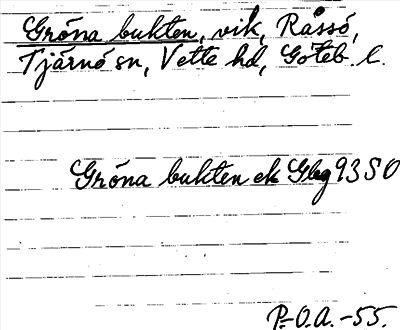 Gröna bukten, vik, Råssö,
Tjärnö sn, Vette hd, Göteb. l.
Gröna bukten ek Gbg 93 SO
P.-O.A. -55.